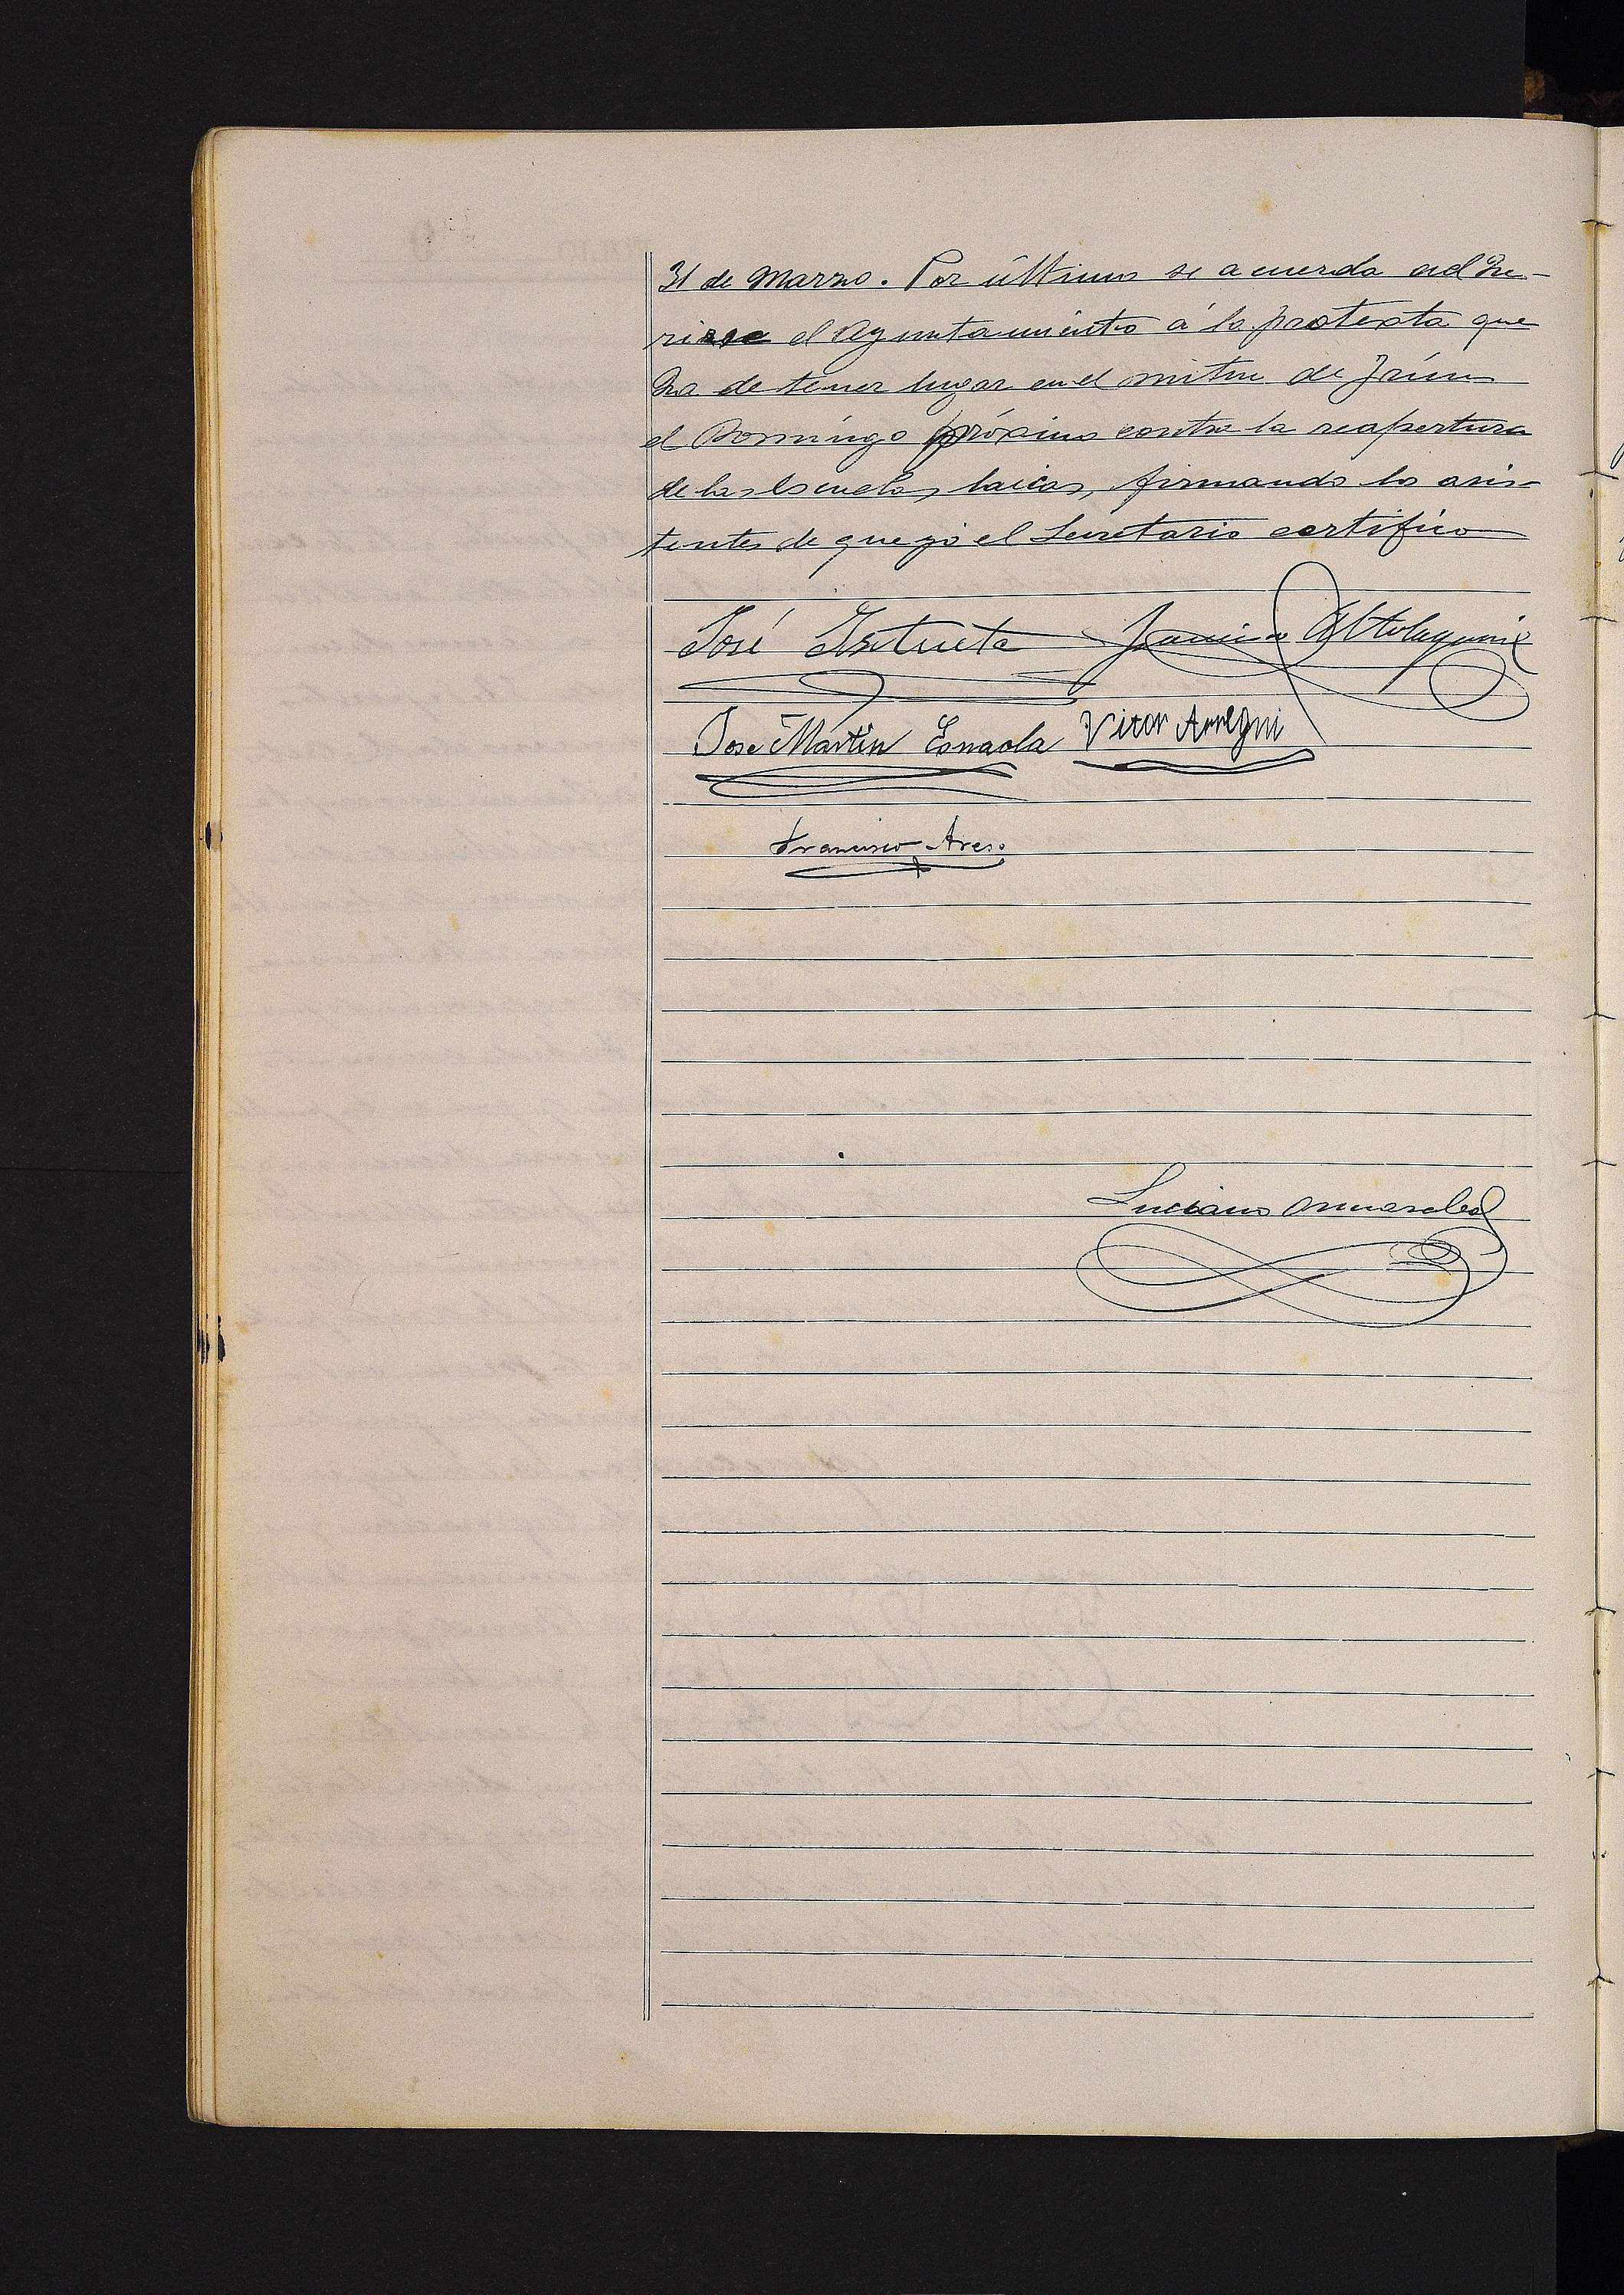 31 de Marzo. Por último se acuerda adhe-
rirse el Ayuntamiento á la protexta que
ha de tener lugar en el mitin de Irún
el Domingo próximo contra la reapertura
de las escuelas laicas, firmando los asis-
tentes de que yo el Secretario certifico
José Iztueta Altolaguirre
Jose Martin Esnaola Vitor Arregui
Francisco Areso
Luciano